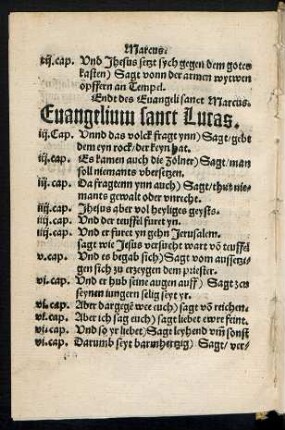 Marcus.
xij.cap. Vnd Jhesus setzt sych gegen dem gotes
kasten) Sagt vonn der armen wytwen
opffern an Tempel.
Endt des Euangeli sanct Marcus.
Euangelium sanct Lucas.
iij.Cap. Vnnd das volck fragt ynn) Sagt/gebt
dem eyn rock/der keyn hat.
iij.cap. Es kamen auch die Zölner) Sagt/man
soll niemants vbersetzen.
iij.cap. Da fragtenn ynn auch) Sagt/thut nie-
mants gewalt oder vnrecht.
iiij.cap. Jhesus aber vol heyliges geysts.
iiij.cap. Vnd der teuffel furet yn.
iiij.cap. Vnd er furet yn gehn Jerusalem.
sagt wie Jesus versucht wart võ teuffel
v.cap. Vnd es begab sich) Sagt vom aussetzi-
gen sich zu erzeygen dem priester.
vi.cap. Vnd er hub seine augen auff) Sagt zen
seynen iungern selig seyt yr.
vi.cap. Aber dargegẽ wee euch) sagt võ reichen.
vi.cap. Aber ich sag euch) sagt liebet ewer feint.
vi.cap. Vnd so yr liebet) Sagt leyhend vm̃ sonst
vi.cap. Darumb seyt barmhertzig) Sagt/ ver-